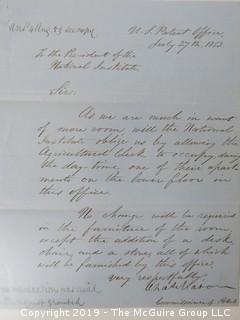 U. S. Patent Office,
July 27th, 1853.
To the President of the
National Institute
Sir.
As we are much in want
of more room will the National
Institute oblige us by allowing the
Agricultural Clerk to occupy during
the day-time one of their apart-
ments on the lower floor in
this office.
No change will be required in
the furniture of the room,
except the addition of a desk
chair and a stove, all of which
will be furnished by this office.
Very respectfully
Commissioner of
Copyright 2019 - The McGuire Group LLC